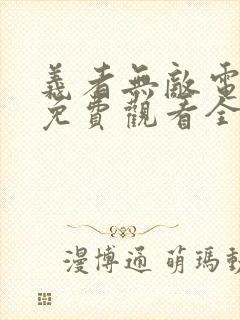 義者無敵電
免費觀看全
漫博通 萌瑪動